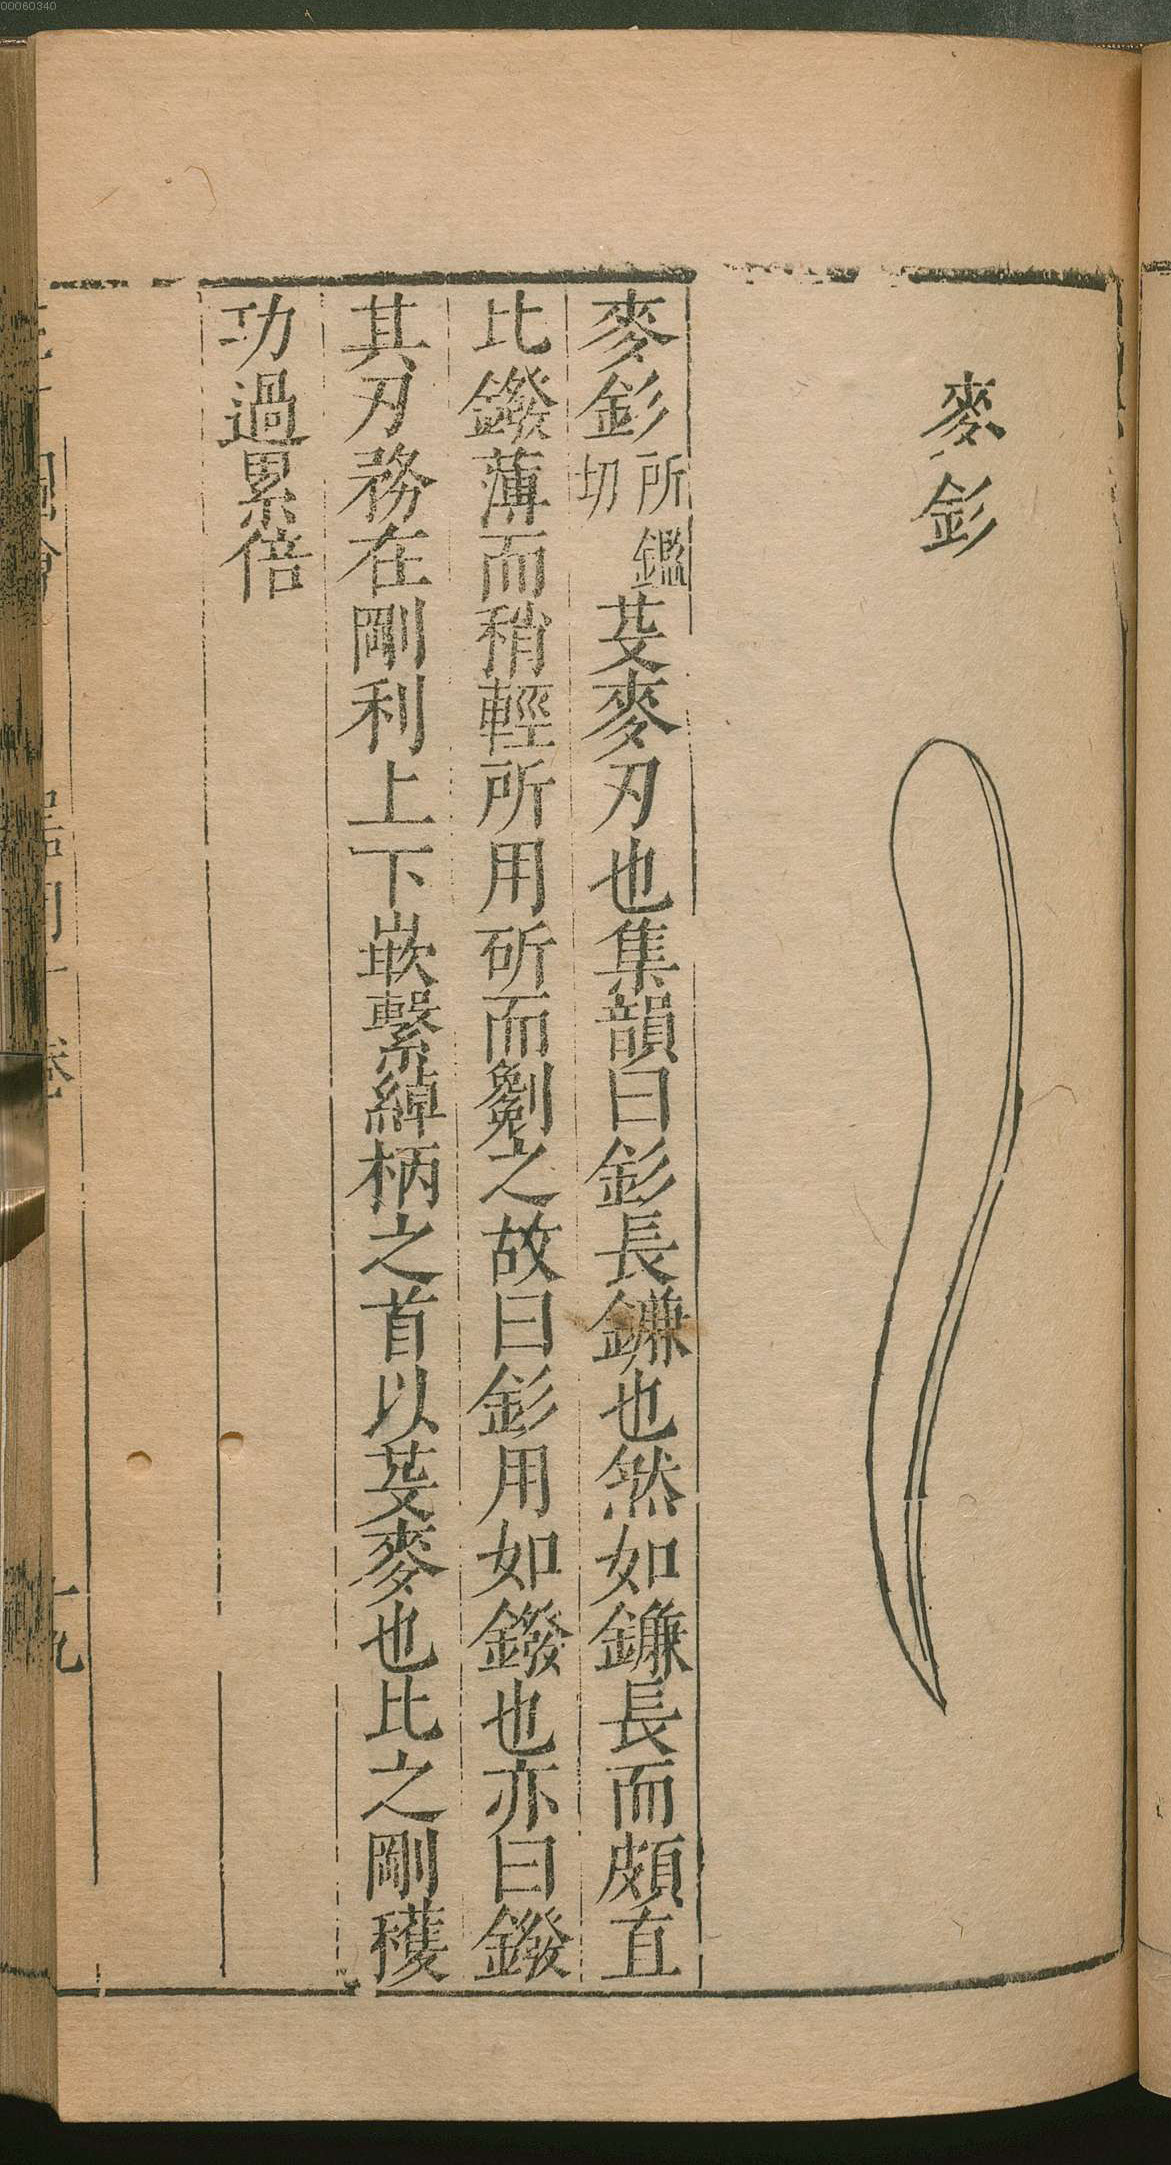 00060340
麥釤
麥釤所鑑切芟麥刃也集韻曰釤長鎌也然如鎌長而頗直
比鏺薄而稍輕所用斫而劖之故曰釤用如鏺也亦曰鏺
其刃務在剛利上下嵌繫綽柄之首以芟麥也比之剛穫
功過累倍